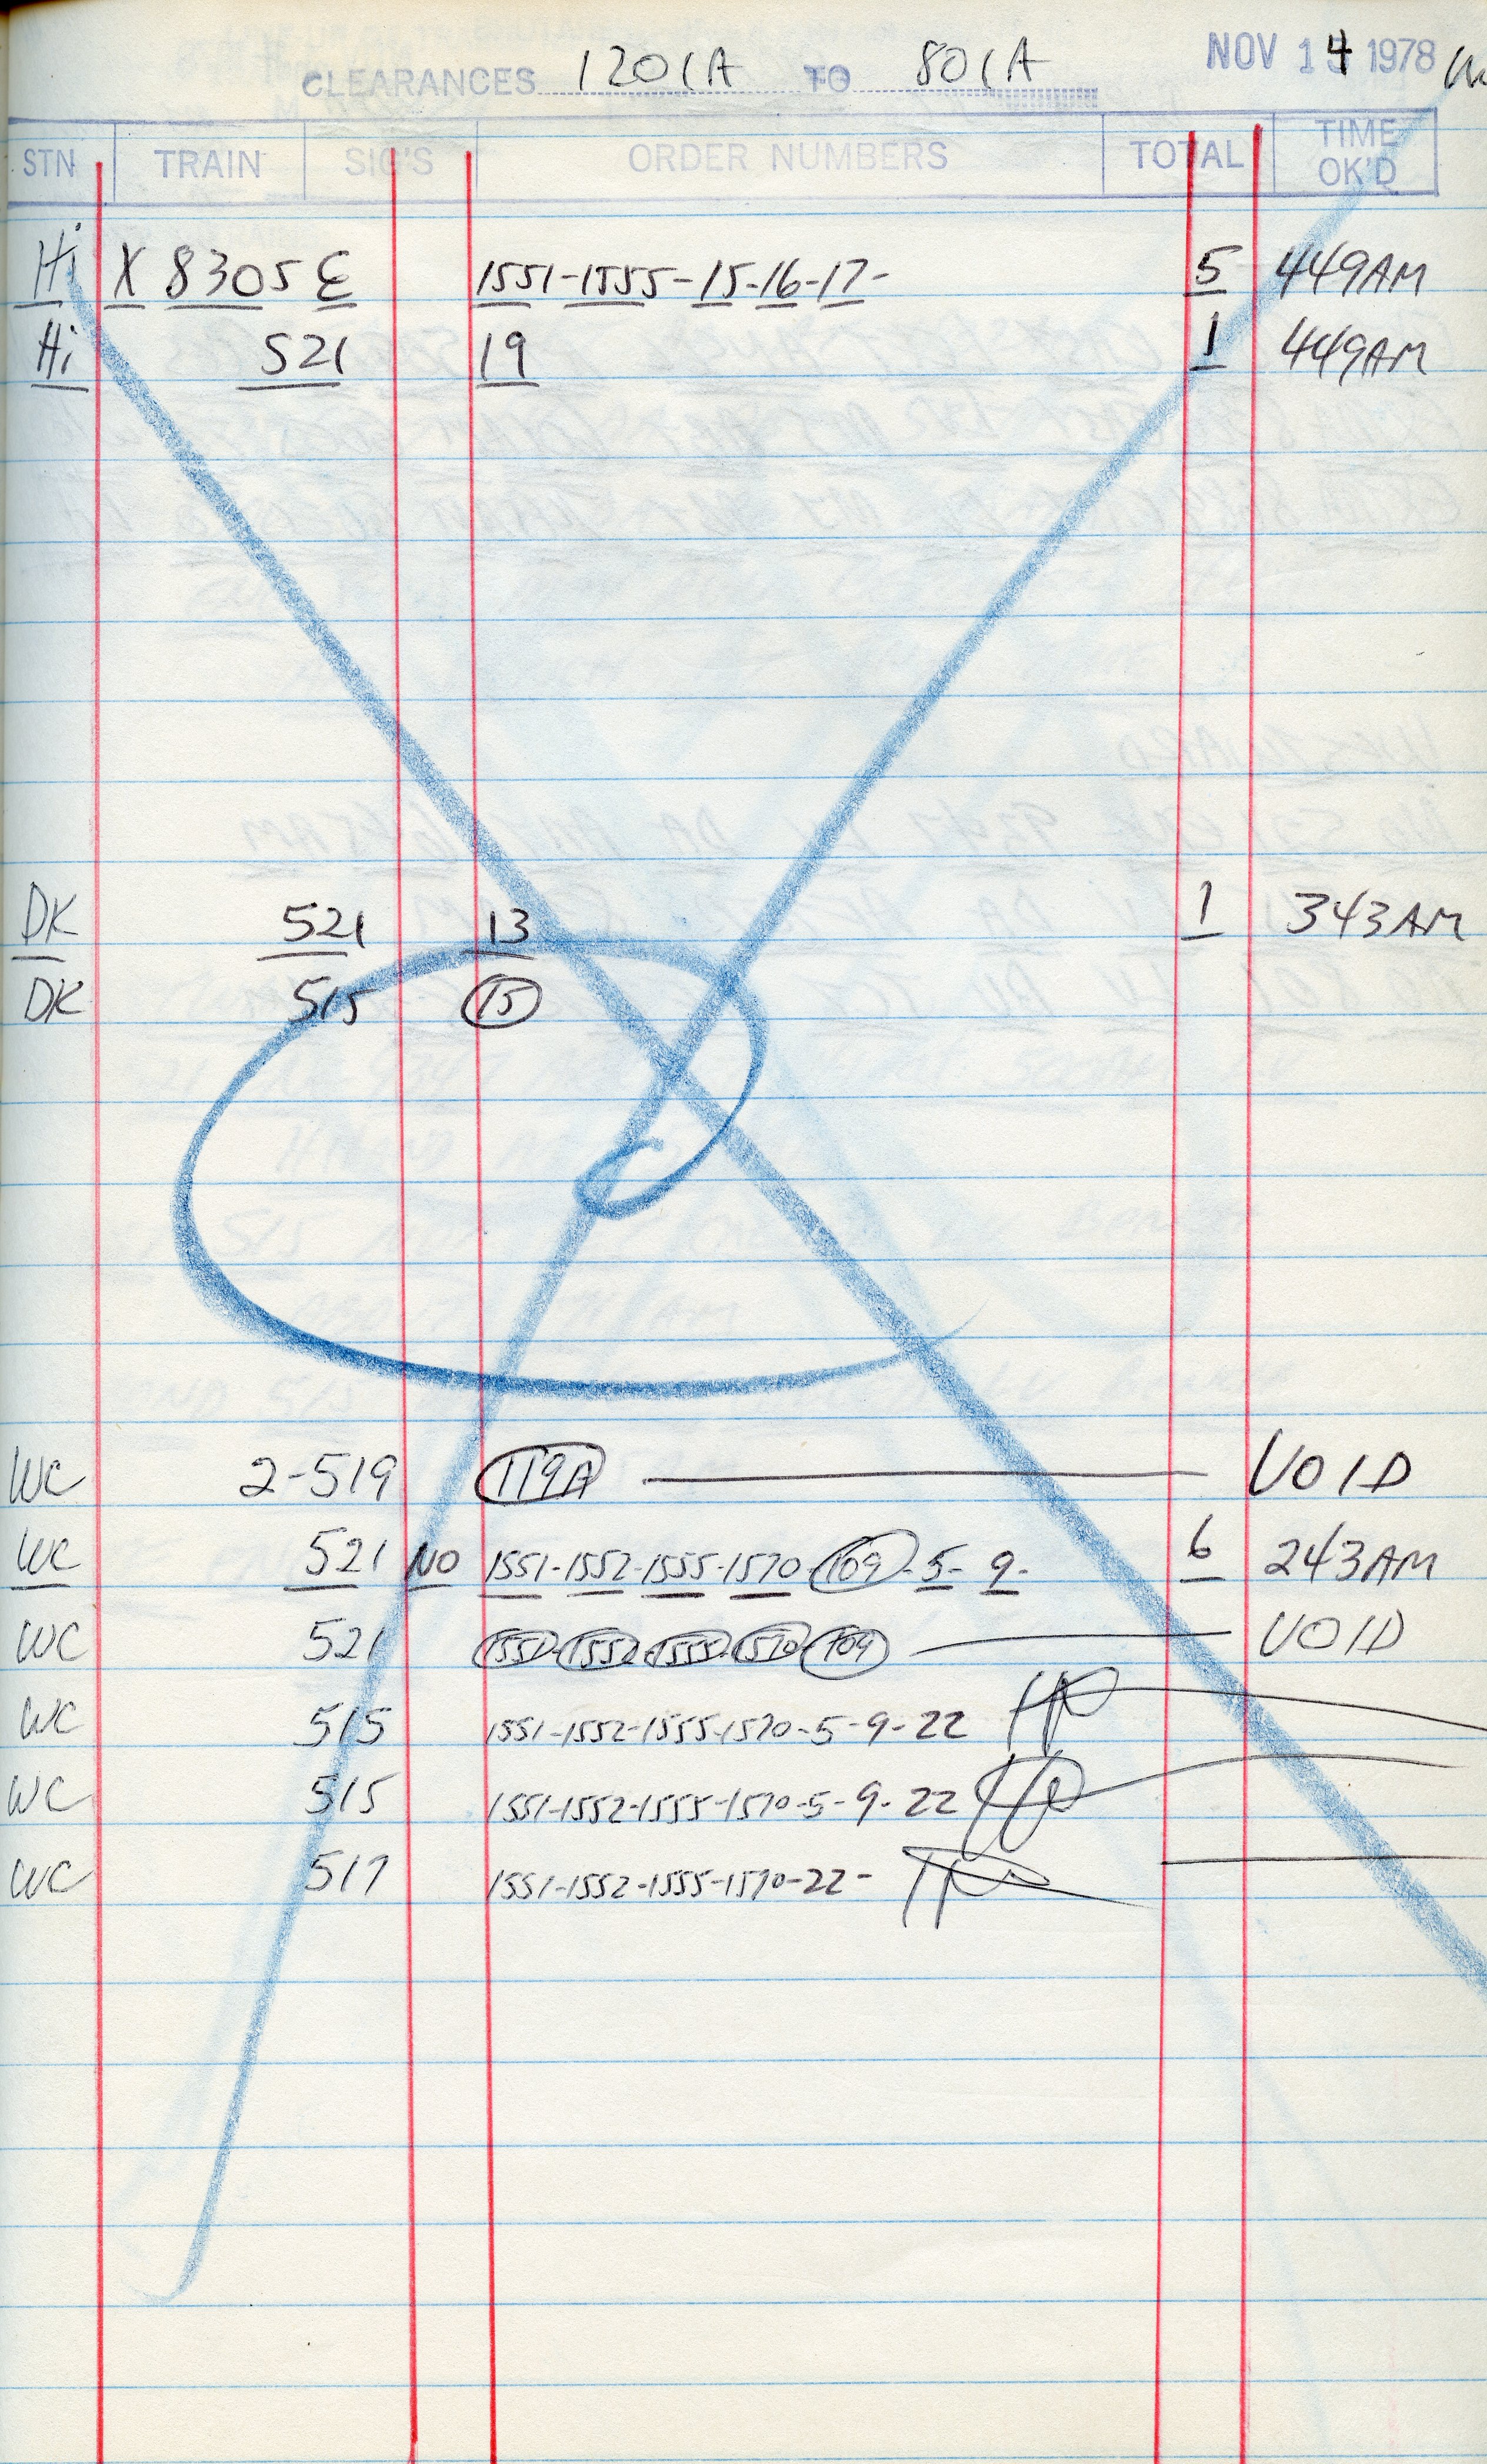 CLEARANCES 1201A TO 801A NOV 14 1978
STN TRAIN SIG'S ORDER NUMBERS TOTAL TIME OK'D
Hi X 8305 E 1551-1555-15-16-17- 5 449AM
Hi 521 19 1 449AM
DK 521 13 1 343AM
DK 515 15
WC 2-519 119A VOID
WC 521 NO 1551-1552-1555-1570-109-5-9- 6 243AM
WC 521 1551-1552-1555-1570-109 VOID
WC 515 1551-1552-1555-1570-5-9-22
WC 515 1551-1552-1555-1570-5-9-22
WC 517 1551-1552-1555-1570-22-